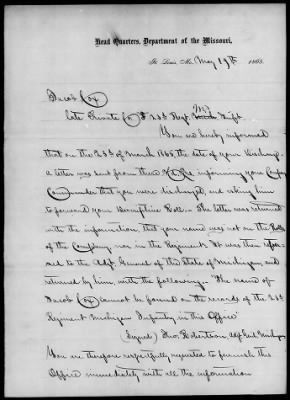 Head Quarters, Department of the Missouri,
St. Louis, Mo. May 19th 1865.
Jacob Cox
Late Private Co 28th Regt Mich Inft
You are hereby informed
that on the 28th of March 1865, the date of your discharg
A letter was sent from these Hd Qrs informing your Company
Commander that you were discharged, and asking him
to forward your Descriptive Roll - The letter was returned
with the information, that you name was not on the Rolls
of the Company nor in the Regiment. It was then refer-
red to the Adjt. General of the State of Michigan and
returned by him with the following. "The name of
Jacob Cox cannot be found on the records of the 28th
Regiment Michigan Infantry in this Office"
(Signed) Jno. Robertson, Adjt Genl. Michigan
You are therefore respectfully requested to furnish this
Office immediately with all the information